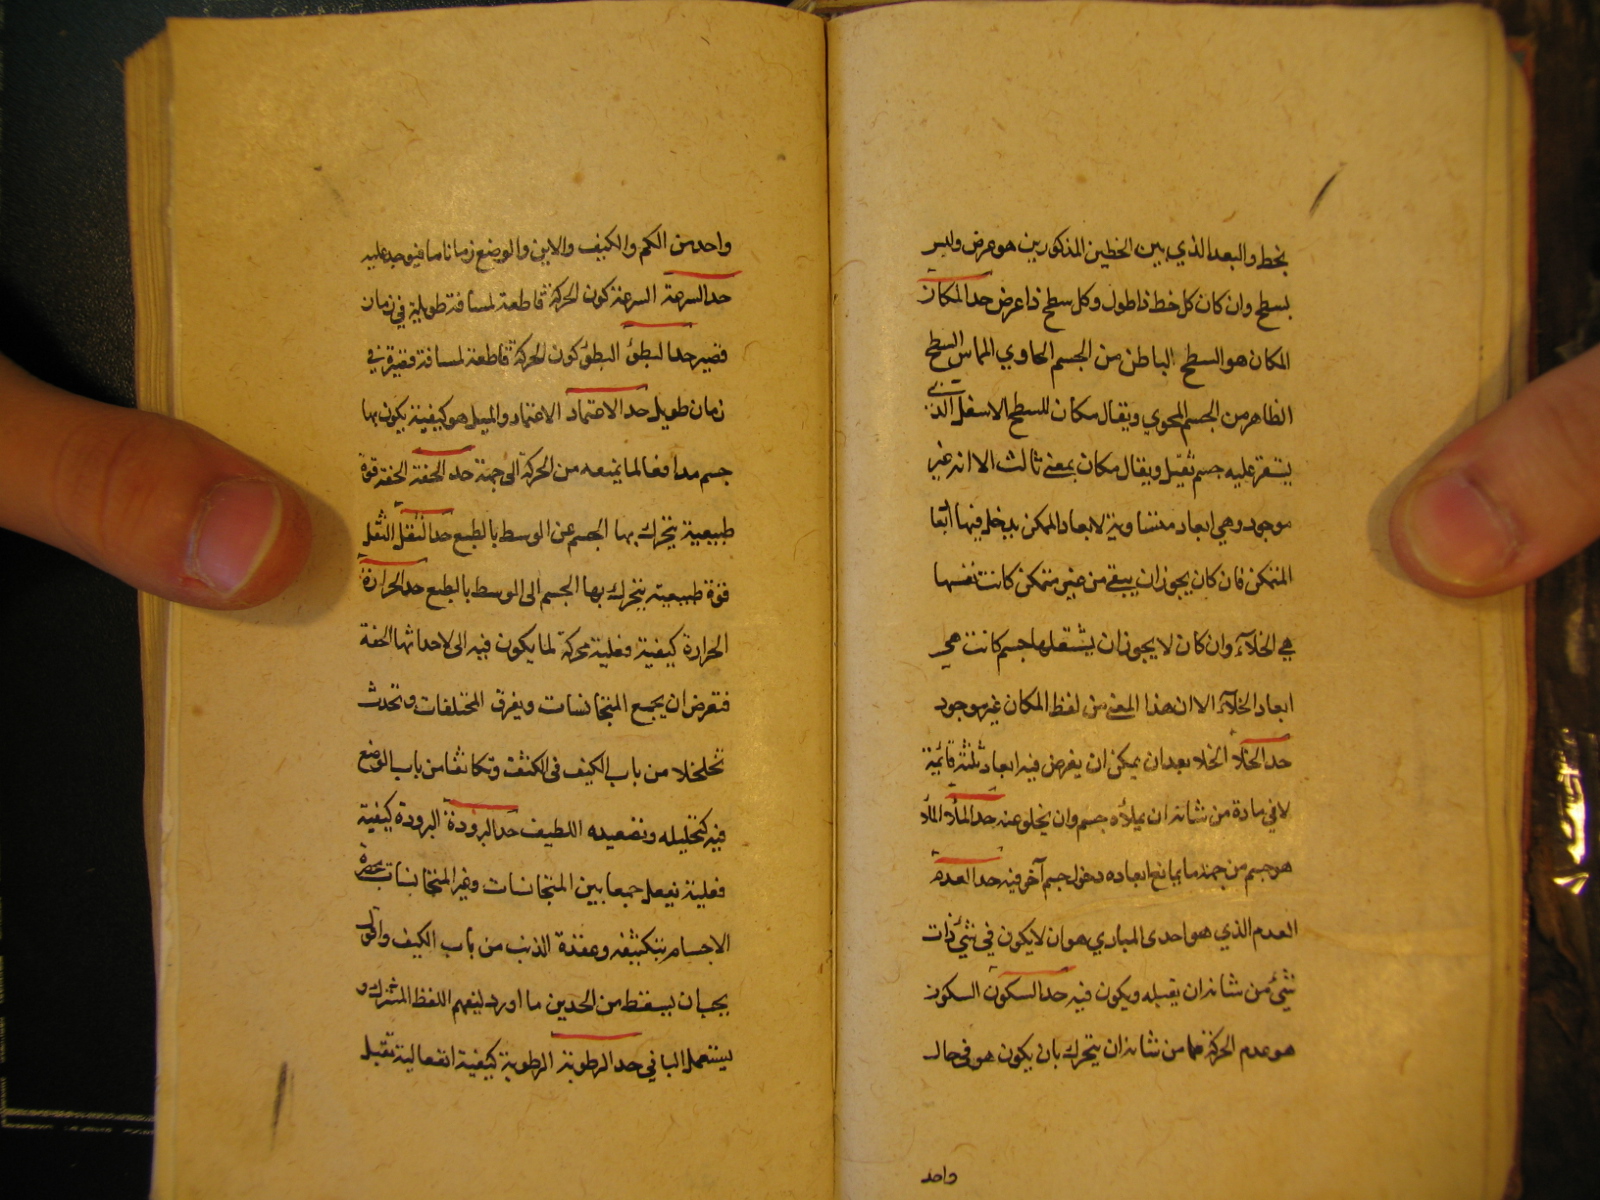 بخط والبعد الذي بين الخطين المذكورين هو عرض وليس
بسطح وان كان كل خط ذا طول وكل سطح ذا عرض حد المكان
المكان هو السطح الباطن من الجسم الحاوي المماس للسطح
الظاهر من الجسم المحوي ويقال مكان للسطح الاسفل الذي
يستقر عليه جسم ثقيل ويقال مكان بمعنى ثالث الا انه غير
موجود وهي ابعاد متساوية لابعاد الممكن يدخل فيها ابعاد
المتمكن فان كان يجوز ان يبقى من غير متمكن كانت نفسها
هي الخلآء وان كان لا يجوز ان يشغلها جسم كانت هي
ابعاد الخلآء الا ان هذا المعنى من لفظ المكان غير موجود
حد الخلاء الخلا بعد ان يمكن ان يفرض فيه ابعاد ثلثة قائمة
لا في مادة من شانه ان يملأه جسم وان يخلو عنه حد الملأ الملأ
هو جسم من جهة ما يمانع ابعاده دخول جسم آخر فيه حد العدم
العدم الذي هو احدى المبادي هو ان لا يكون في شئ ذات
شئ من شانه ان يقبله ويكون فيه حد السكون السكون
هو عدم الحركة مما من شانه ان يتحرك بان يكون هو في حال
واحد
واحد من الكم والكيف والاين والوضع زمانا ما فيوجد عليه
حد السرعة السرعة كون الحركة قاطعة لمسافة طويلة في زمان
قصير حد البطؤ البطؤ كون الحركة قاطعة لمسافة قصيرة في
زمان طويل حد الاعتماد الاعتماد والميل هو كيفية يكون بها
جسم مدافعا لما يمنعه من الحركة الى جهة حد الخفة الخفة قوة
طبيعية يتحرك بها الجسم عن الوسط بالطبع حد الثقل الثقل
قوة طبيعية يتحرك بها الجسم الى الوسط بالطبع حد الحرارة
الحرارة كيفية فعلية محركة لما يكون فيه الى لاحداثها الخفة
فتعرض ان يجمع المتجانسات ويفرق المختلفات وتحدث
تخلخلا من باب الكيف في الكثيف وتكاثفا من باب الوضع
فيه كتحليله وتصعيده اللطيف حد البرودة البرودة كيفية
فعلية يفعل جمعا بين المتجانسات وغير المتجانسات
الاجسام بتكثيفه وعقده الذين من باب الكيف واقول
يجب ان يسقط من الحدين ما اورد لتفهم اللفظ المشترك و
يستعمل الباقي حد الرطوبة الرطوبة كيفية انفعالية تقبل